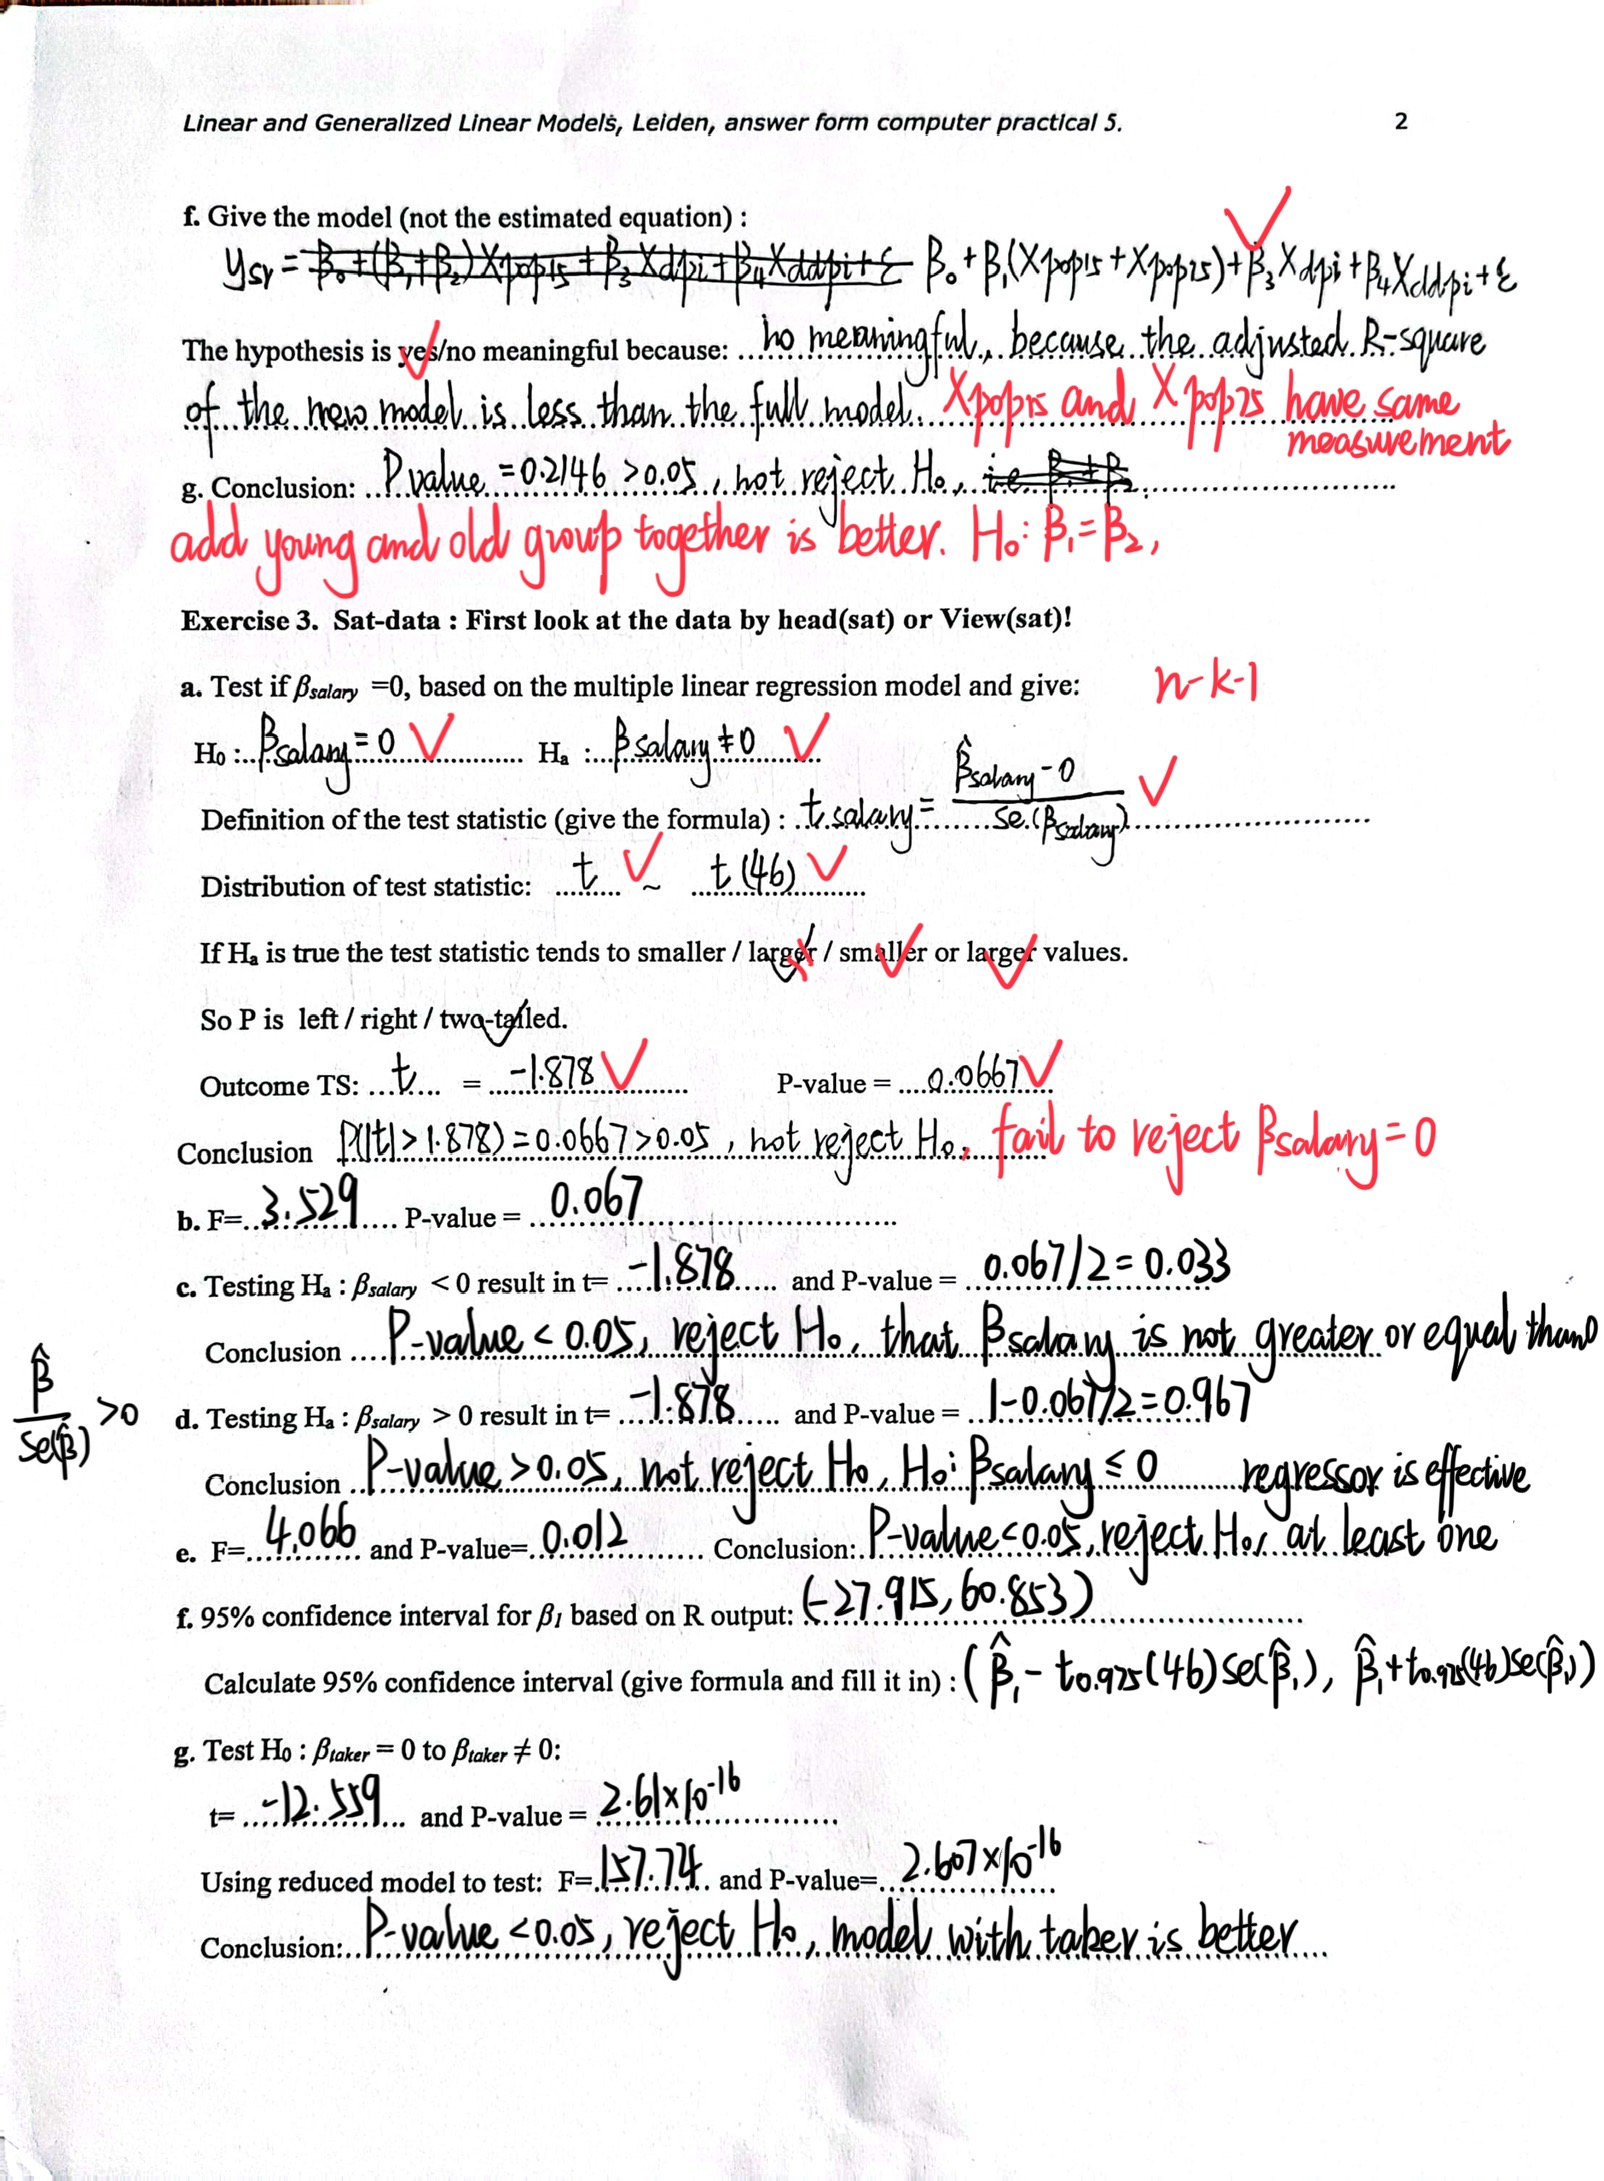 Linear and Generalized Linear Models, Leiden, answer form computer practical 5. 2
f. Give the model (not the estimated equation) :
ysr = β₀+(β₁+β₂)Xpop15+β₃Xdpi+β₄Xddpi+ε β₀+β₁(Xpop15+Xpop75)+β₃Xdpi+β₄Xddpi+ε
The hypothesis is yes/no meaningful because: no meaningful, because the adjusted R-square
of the new model is less than the full model. Xpop15 and Xpop75 have same
measurement
g. Conclusion: P value = 0.2146 >0.05, not reject H₀, i.e. β₁≠β₂
add young and old group together is better. H₀: β₁=β₂,
Exercise 3. Sat-data : First look at the data by head(sat) or View(sat)!
a. Test if βsalary =0, based on the multiple linear regression model and give: n-k-1
H₀ : βsalary = 0 Hₐ : βsalary ≠ 0
Definition of the test statistic (give the formula) : t salary = (β̂salary - 0) / se(βsalary)
Distribution of test statistic: t ~ t(46)
If Hₐ is true the test statistic tends to smaller / larger / smaller or larger values.
So P is left / right / two-tailed.
Outcome TS: t = -1.878 P-value = 0.0667
Conclusion P(|t|>1.878)=0.0667>0.05, not reject H₀, fail to reject βsalary=0
b. F= 3.529 P-value = 0.067
c. Testing Hₐ : βsalary < 0 result in t= -1.878 and P-value = 0.067/2=0.033
Conclusion P-value < 0.05, reject H₀, that βsalary is not greater or equal than 0
β̂/se(β̂) >0
d. Testing Hₐ : βsalary > 0 result in t= -1.878 and P-value = 1-0.067/2=0.967
Conclusion P-value >0.05, not reject H₀, H₀: βsalary ≤ 0 regressor is effective
e. F= 4.066 and P-value= 0.012 Conclusion: P-value<0.05, reject H₀, at least one
f. 95% confidence interval for β₁ based on R output: (-27.915, 60.853)
Calculate 95% confidence interval (give formula and fill it in) : (β̂₁ - t0.975(46)se(β̂₁), β̂₁+t0.975(46)se(β̂₁))
g. Test H₀ : βtaker = 0 to βtaker ≠ 0:
t= -12.559 and P-value = 2.61×10⁻¹⁶
Using reduced model to test: F= 157.74 and P-value= 2.607×10⁻¹⁶
Conclusion: P-value <0.05, reject H₀, model with taker is better